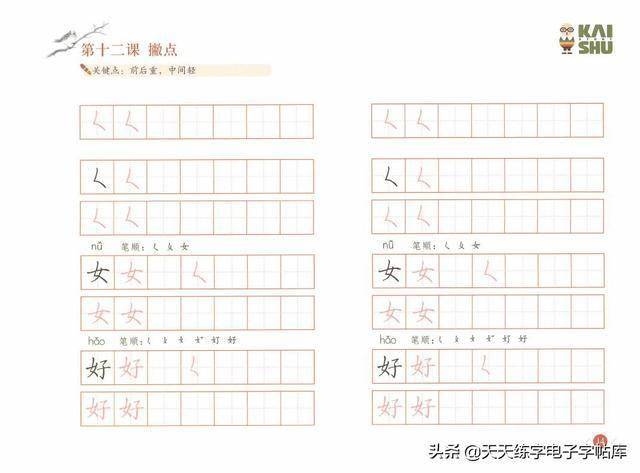 第十二课 撇点
KAI
SHU
关键点：前后重，中间轻
ㄑ ㄑ
ㄑ ㄑ
ㄑ ㄑ
nǚ 笔顺：ㄑ 女
女 女 ㄑ
女 女
hǎo 笔顺：ㄑ 女 好
好 好 ㄑ
好 好
ㄑ ㄑ
ㄑ ㄑ
ㄑ ㄑ
nǚ 笔顺：ㄑ 女
女 女 ㄑ
女 女
hǎo 笔顺：ㄑ 女 好
好 好 ㄑ
好 好
头条 @天天练字电子字帖库